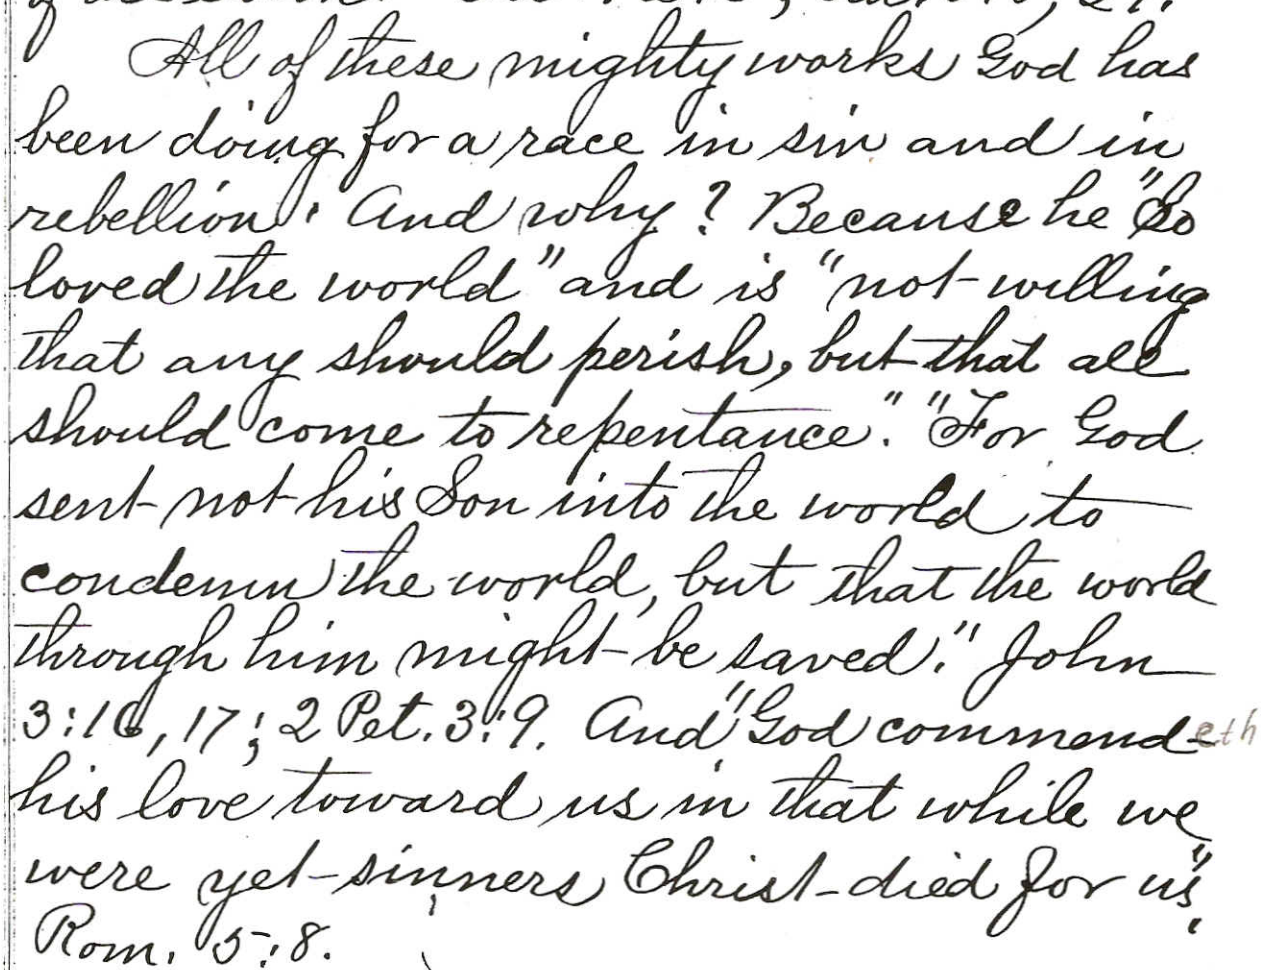 All of these mighty works God has
been doing for a race in sin and in
rebellion. And why? Because he "So
loved the world" and is "not willing
that any should perish, but that all
should come to repentance." "For God
sent not his Son into the world to
condemn the world, but that the world
through him might be saved." John
3:16, 17; 2 Pet. 3:9. And "God commendeth
his love toward us in that while we
were yet sinners, Christ died for us".
Rom. 5:8.